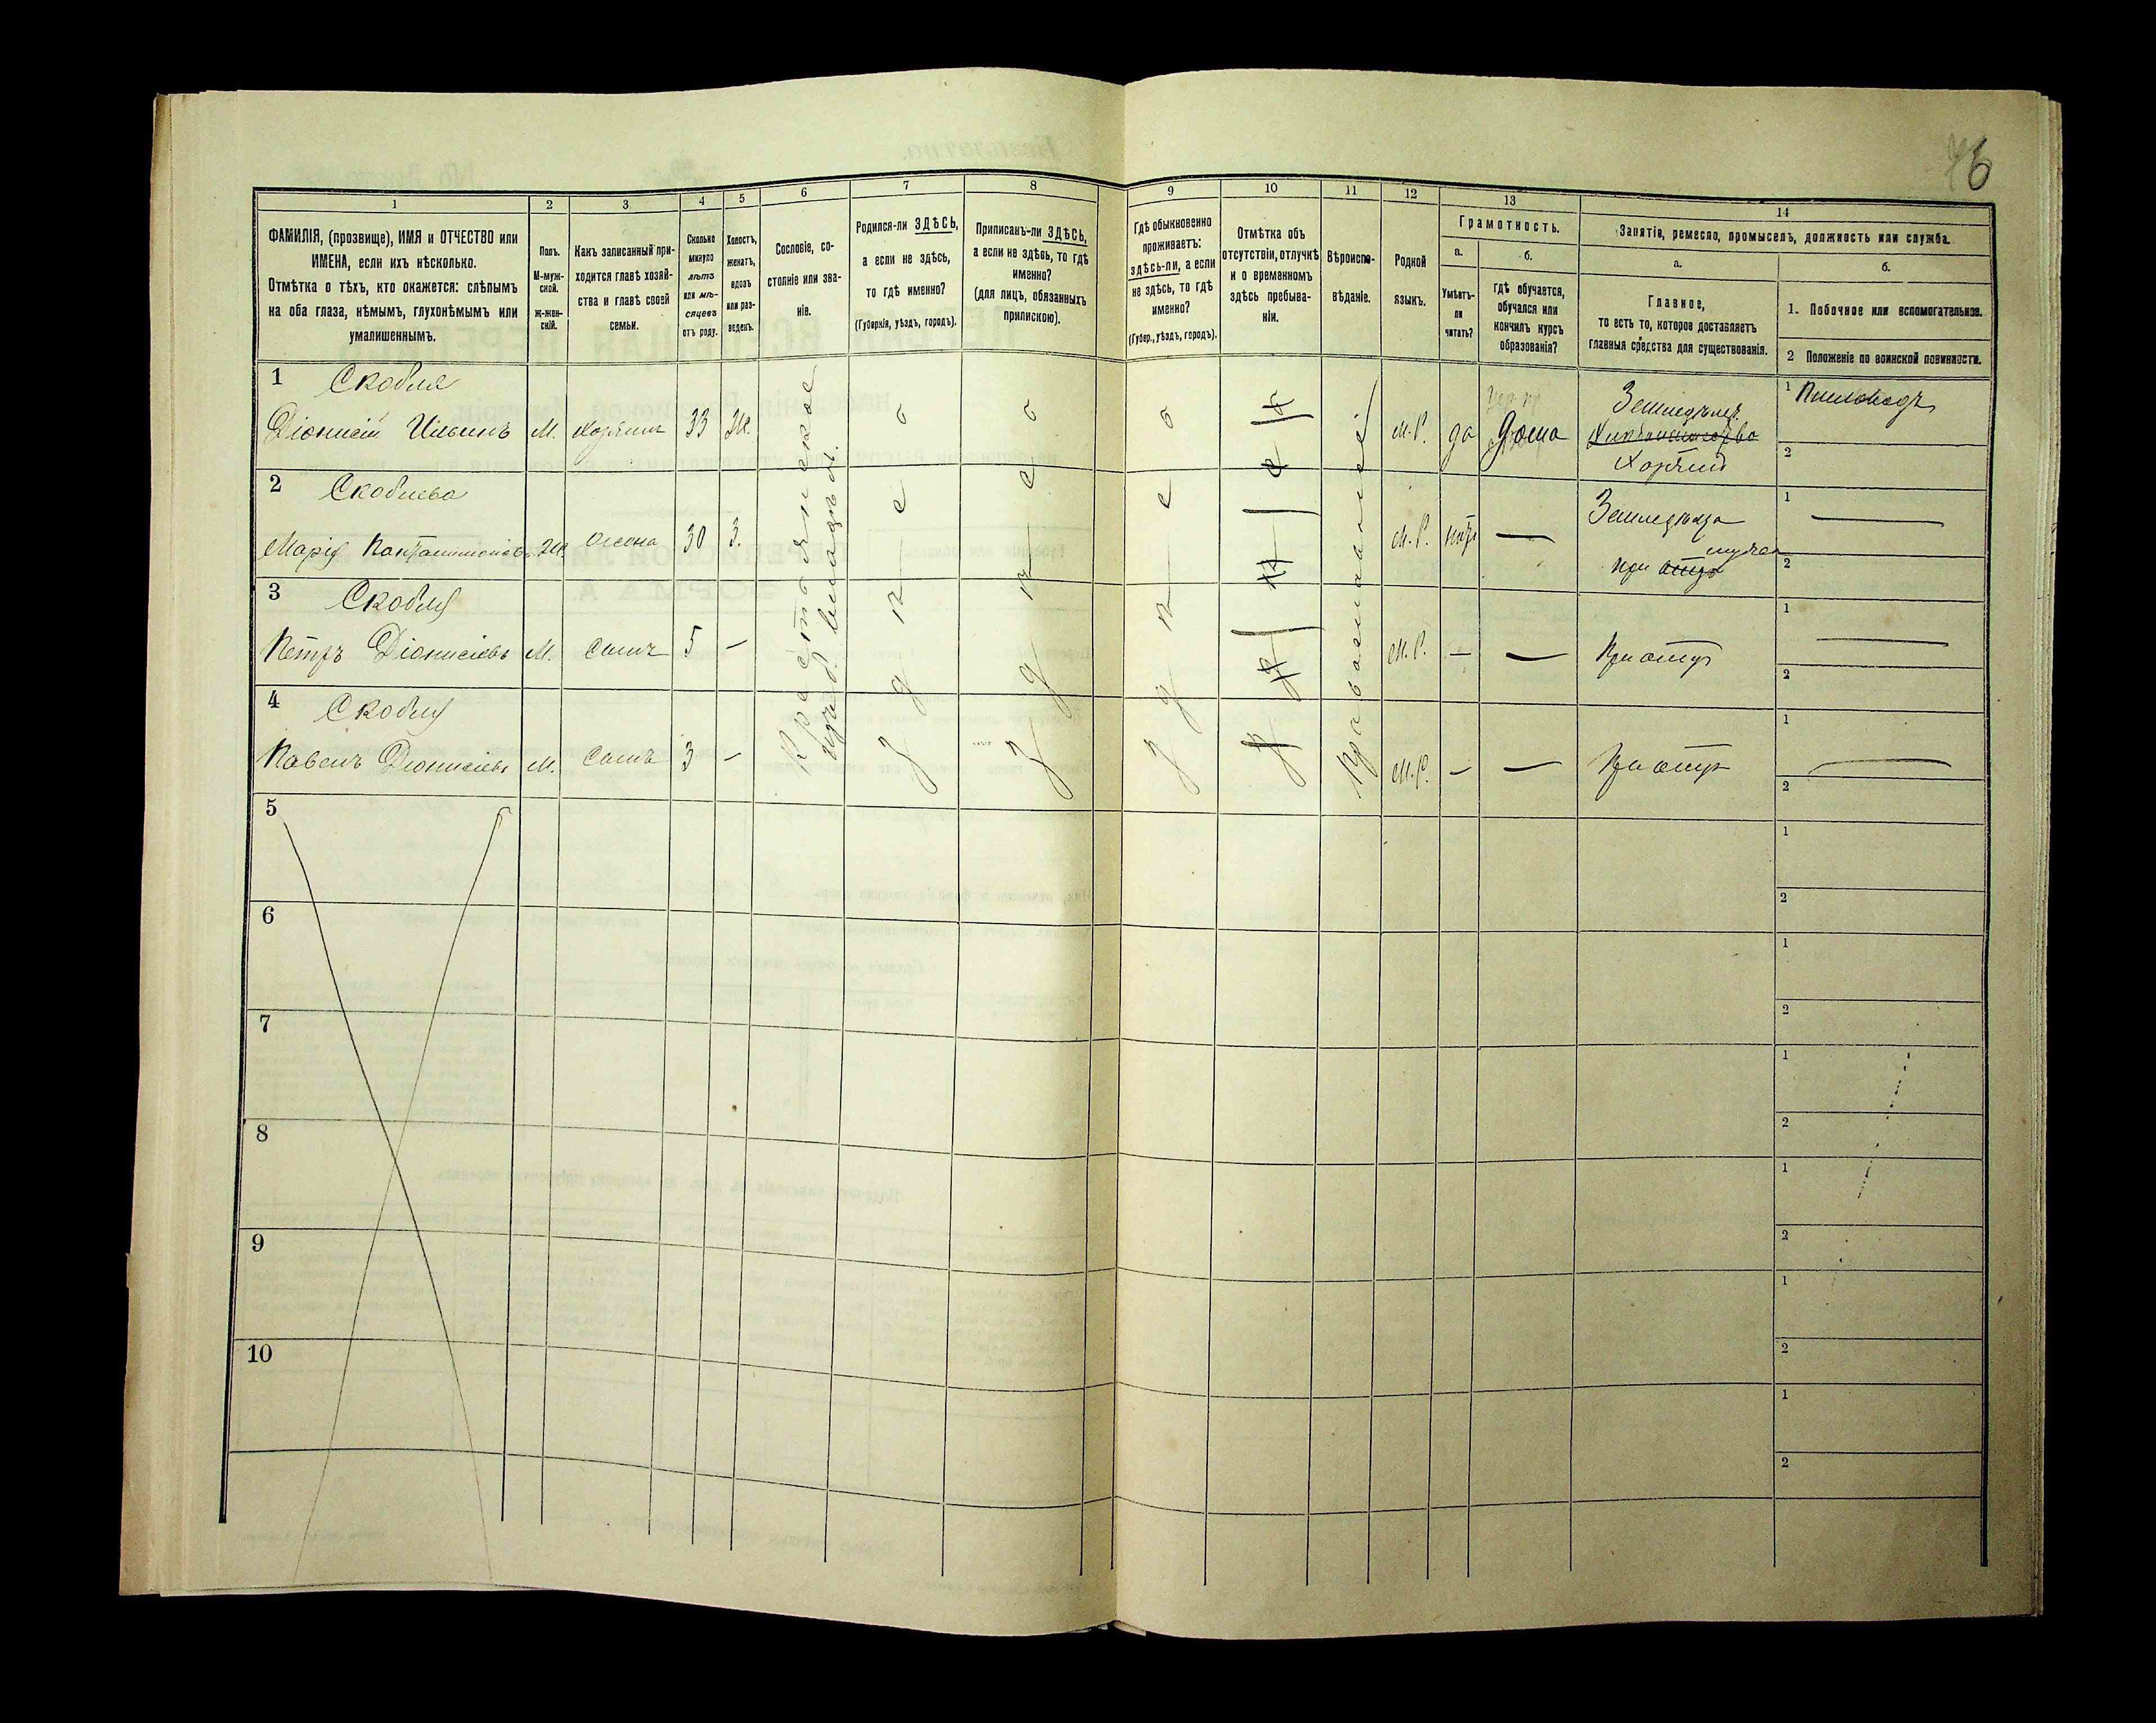 76
1
2
3
4
5
6
7
8
9
10
11
12
13
14
ФАМИЛІЯ, (прозвище), ИМЯ и ОТЧЕСТВО или
ИМЕНА, если ихъ нѣсколько.
Отмѣтка о тѣхъ, кто окажется: слѣпымъ
на оба глаза, нѣмымъ, глухонѣмымъ или
умалишеннымъ.
Полъ.
М-муж-
ской.
Ж-жен-
скій.
Какъ записанный при-
ходится главѣ хозяй-
ства и главѣ своей
семьи.
Сколько
минуло
лѣтъ
или мѣ-
сяцевъ
отъ роду.
Холостъ,
женатъ,
вдовъ
или раз-
веденъ.
Сословіе, со-
стояніе или зва-
ніе.
Родился-ли ЗДѢСЬ,
а если не здѣсь,
то гдѣ именно?
(Губернія, уѣздъ, городъ).
Приписанъ-ли ЗДѢСЬ,
а если не здѣсь, то гдѣ
именно?
(для лицъ, обязанныхъ
припискою).
Гдѣ обыкновенно
проживаетъ:
здѣсь-ли, а если
не здѣсь, то гдѣ
именно?
(Губер., уѣздъ, городъ).
Отмѣтка объ
отсутствіи, отлучкѣ
и о временномъ
здѣсь пребыва-
ніи.
Вѣроиспо-
вѣданіе.
Родной
языкъ.
Грамотность.
а.
Умѣетъ-
ли
читать?
б.
гдѣ обучается,
обучался или
кончилъ курсъ
образованія?
Занятія, ремесло, промыселъ, должность или служба.
а.
Главное,
то есть то, которое доставляетъ
главныя средства для существованія.
б.
1. Побочное или вспомогательное.
2 Положеніе по воинской повинности.
1 Скобля
Діонисій Ильинъ М. Хозяинъ 33 Ж. М.Р. да Дома
Земледѣлецъ
Хозяинъ
1 Пчеловодъ
2
Крестьянское
изъ влад.
здѣсь
здѣсь
здѣсь
Православное
2 Скоблева
Марія Ж. жена 30 З. М.Р. нѣтъ —
Земледѣлія
при мужѣ
1 —
2
3 Скобля
Петръ Діонисіевъ М. Сынъ 5 — М.Р. — — При отцѣ
1 —
2
4 Скобля
Павелъ Діонисіевъ М. Сынъ 3 — М.Р. — — При отцѣ
1 —
2
5
1
2
6
1
2
7
1
2
8
1
2
9
1
2
10
1
2